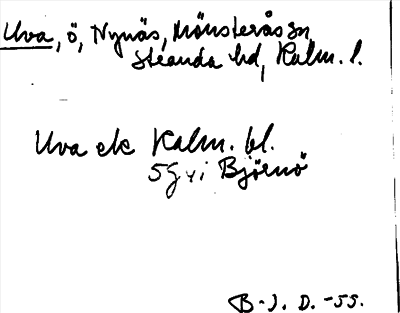 Uva, ö, Nynäs, Mönsterås sn,
Stranda hd, Kalm. l.
Uva ek Kalm. bl.
5G vi Björnö
B-J. D. -55.